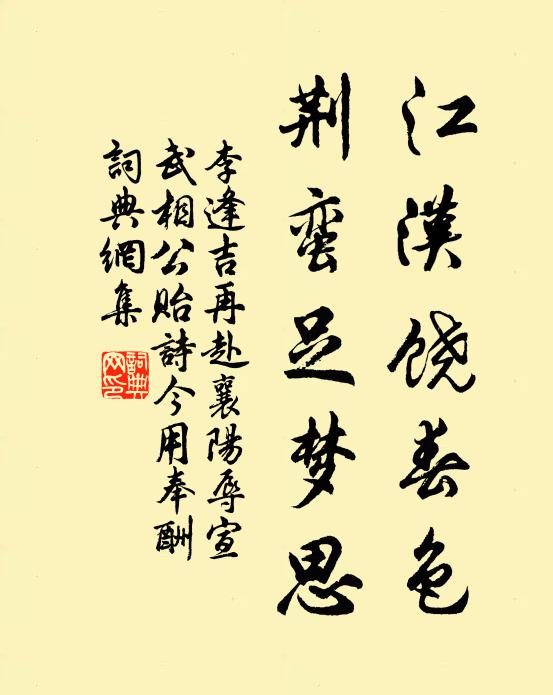 江汉饶春色
荆蛮足梦思
李逢吉再赴襄陽辱宣
武相公貽詩今用奉酬
詞典網集
詞典網印